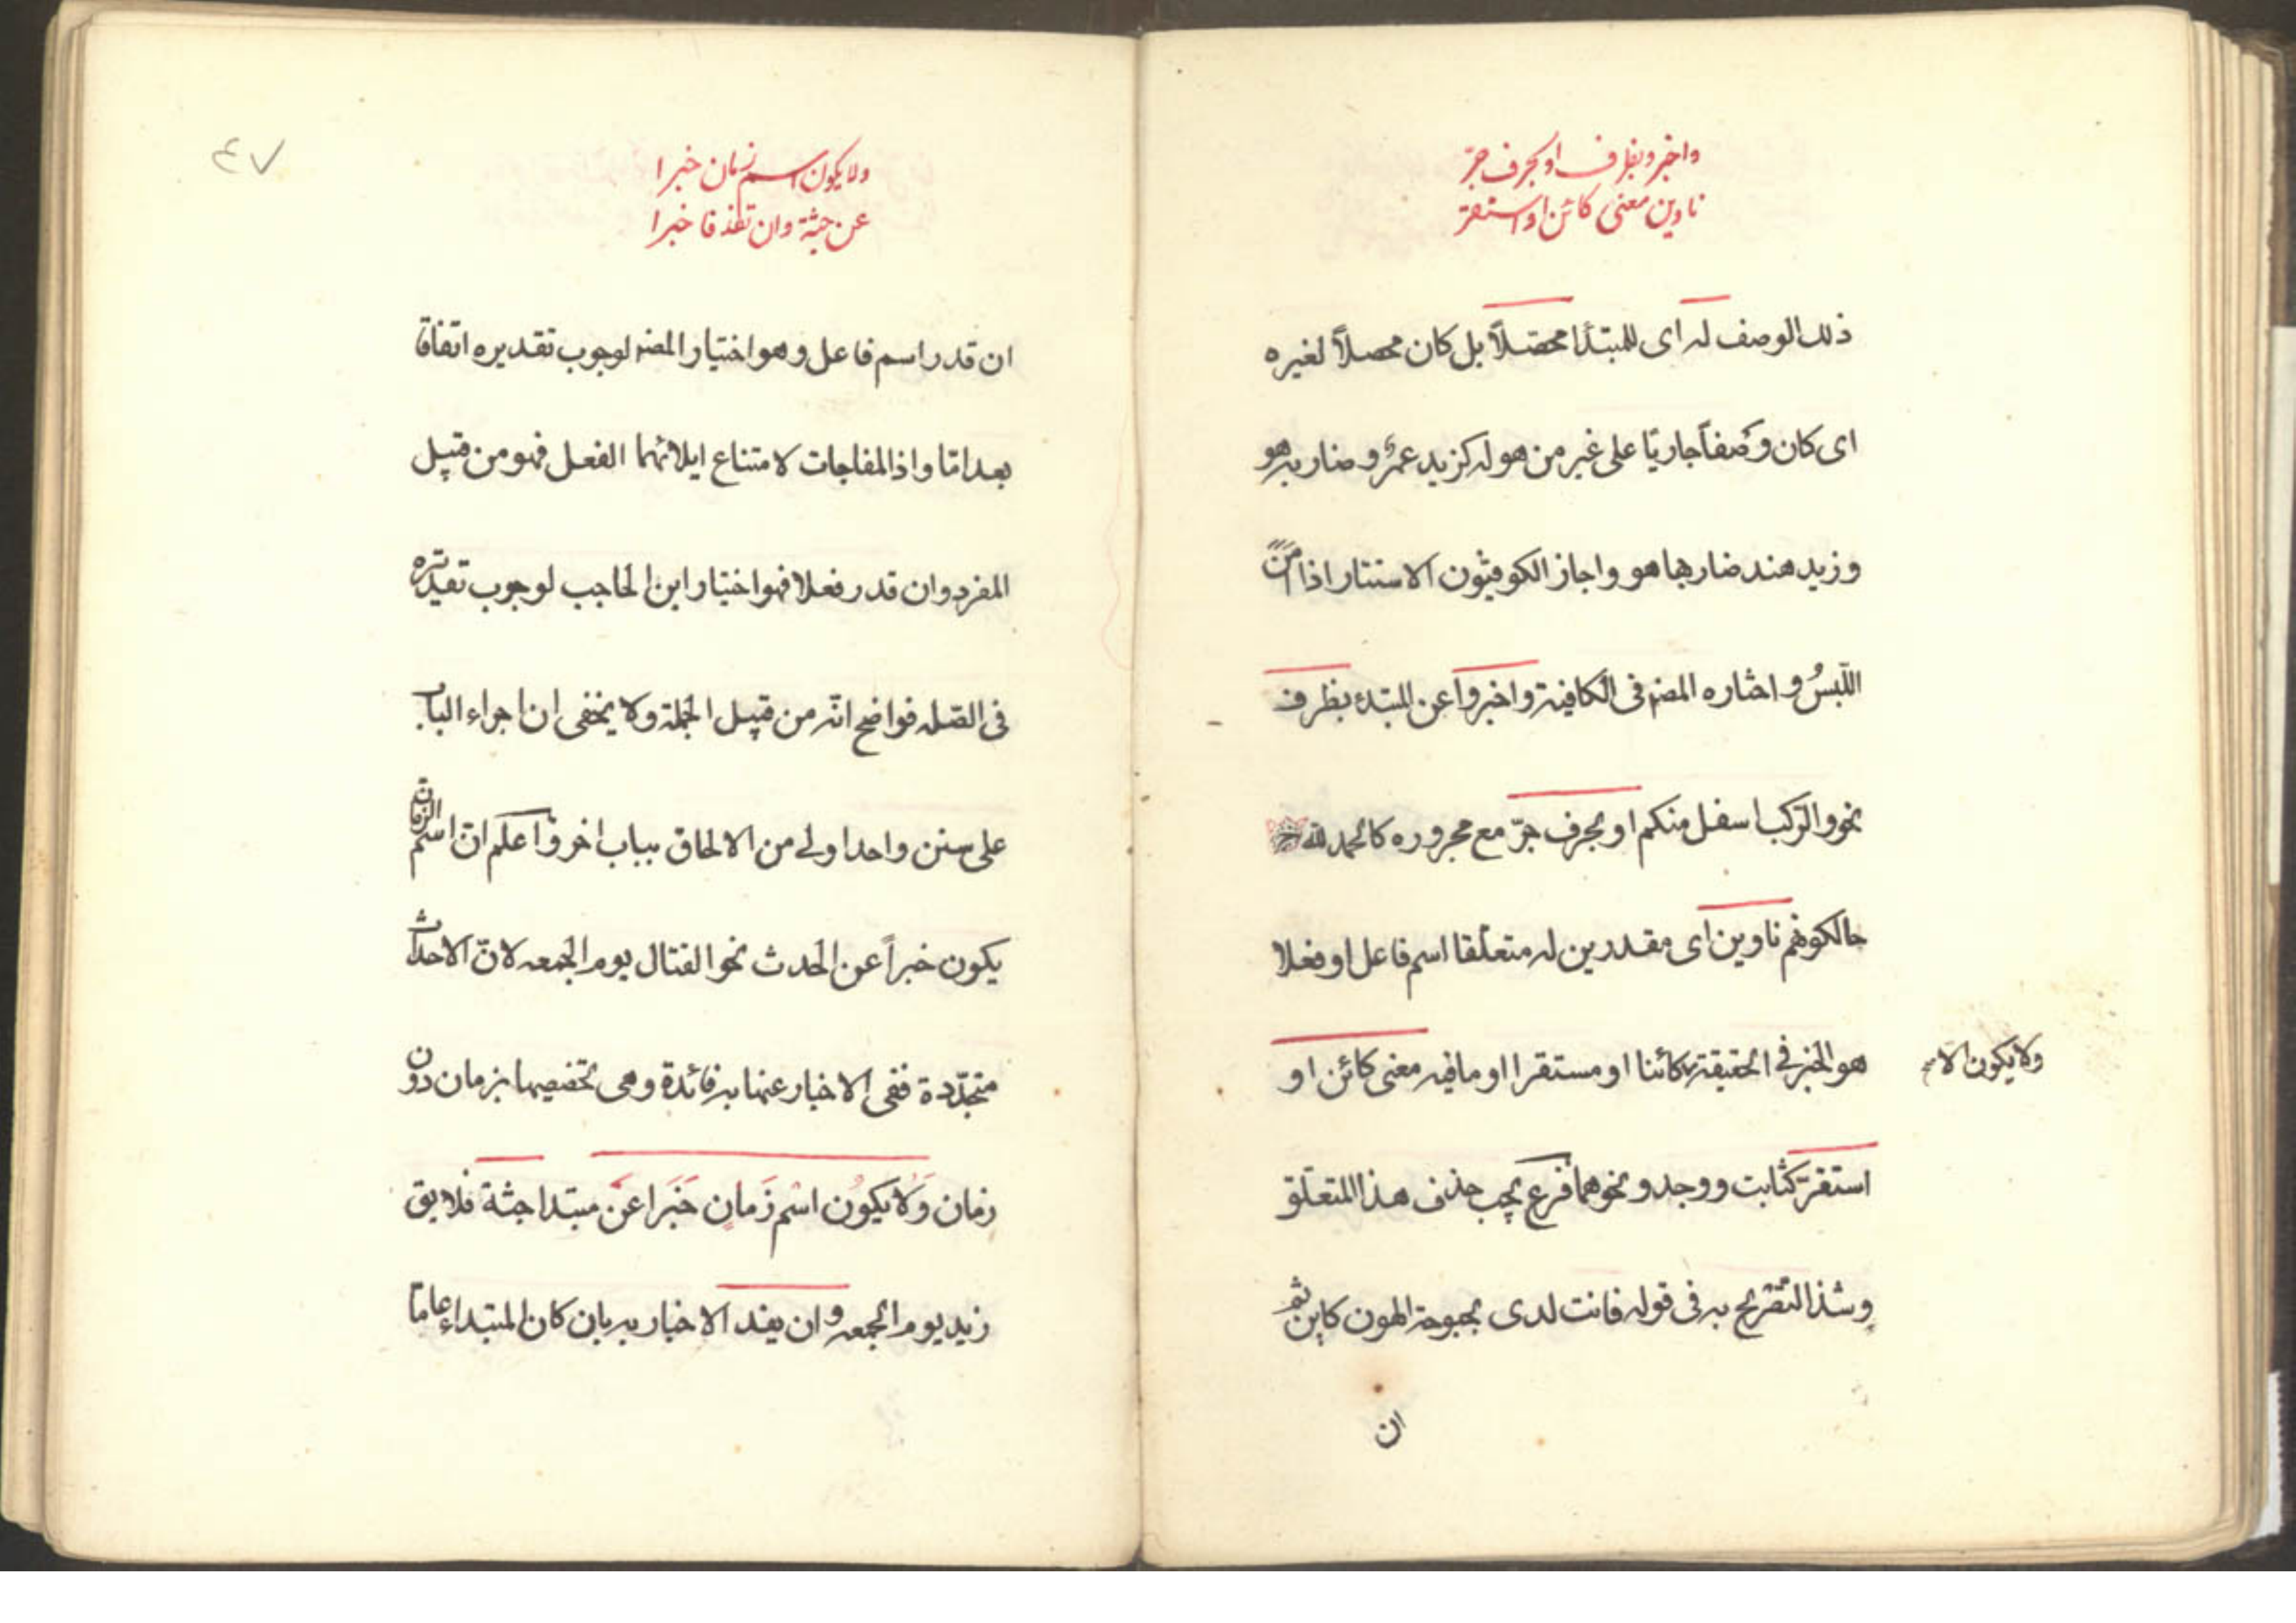 واخبروبظرف اوبحرف جرّ
ناوين معنى كائن اواستقرّ
ذلك الوصف له اى للمبتدا محصّلاً بل كان محصلاً لغيره
اى كان وصفاً جاريًا على غير من هو له كزيد عمرٌو ضاربه هو
وزيد هند ضاربها هو واجاز الكوفيّون الاستتار اذا امن
اللّبسُ واختاره المصنف فى الكافية واخبروا عن المبتدء بظرف
نحو والرّكب اسفل منكم او بحرف جرّ مع مجروره كالحمد لله
حالكونهم ناوين اى مقدرين له متعلّقا اسم فاعل او فعلا
هو الخبر فى الحقيقة كائنا او مستقرا او ما فيه معنى كائن او
ولا يكون الاسم
استقرّ كثابت ووجد ونحوهما فرع يجب حذف هذا المتعلّق
وشذ التّصريح به فى قوله فانت لدى بحبوحة الهون كاين ثم
ان
٤٧
ولايكون اسم زمان خبرا
عن جثة وان تفد فاخبرا
ان قدر اسم فاعل وهو اختيار المصنف لوجوب تقديره اتفاقا
بعد امّا واذا المفاجات لامتناع ايلائهما الفعل فهو من قبيل
المفرد وان قدر فعلا فهو اختيار ابن الحاجب لوجوب تقديره
فى الصّله فواضح انّه من قبيل الجملة ولا يخفى ان اجراء الباب
على سنن واحد اولى من الالحاق بباب اخر واعلم انّ اسم الزمان
يكون خبراً عن الحدث نحو القتال يوم الجمعه لانّ الاحداث
متجدّدة ففى الاخبار عنها به فائدة وهى تخصيصها بزمان دون
زمان وَلا يكُون اسْم زَمان خَبَرا عَن مبتدا جثة فلا يق
زيد يوم الجمعه وان يفد الاخبار به بان كان المبتداء عاما